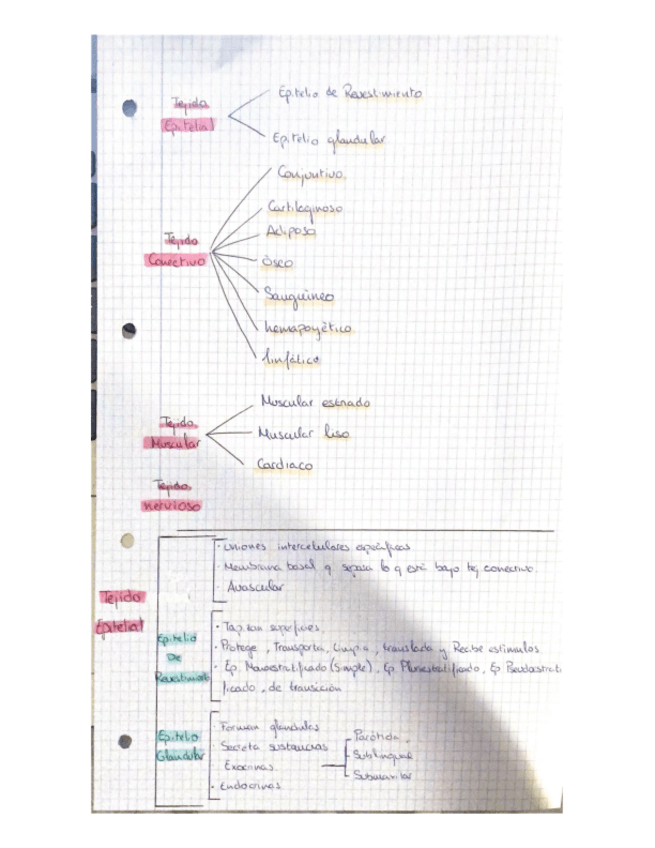 Tejido
Epitelial
Epitelio de Revestimiento
Epitelio glandular
Tejido
Conectivo
Conjuntivo.
Cartilaginoso
Adiposo
Óseo
Sanguíneo
hemapoyético
linfático
Tejido
Muscular
Muscular estriado
Muscular liso
Cardiaco
Tejido
nervioso
Tejido
Epitelial
· Uniones intercelulares específicas
· Membrana basal q separa lo q está bajo tej conectivo.
· Avascular
Epitelio
De
Revestimiento
· Tapizan superficies.
· Protege, Transporta, Limpia, translada y Recibe estimulos
· Ep. Monoestratificado (Simple), Ep Pluriestratificado, Ep Pseudoestrati
ficado, de transición
Epitelio
Glandular
· Forman glandulas
· Secreta sustancias
· Exocrinas.
· Endocrinas
Parótida.
Sublingual
Submaxilar